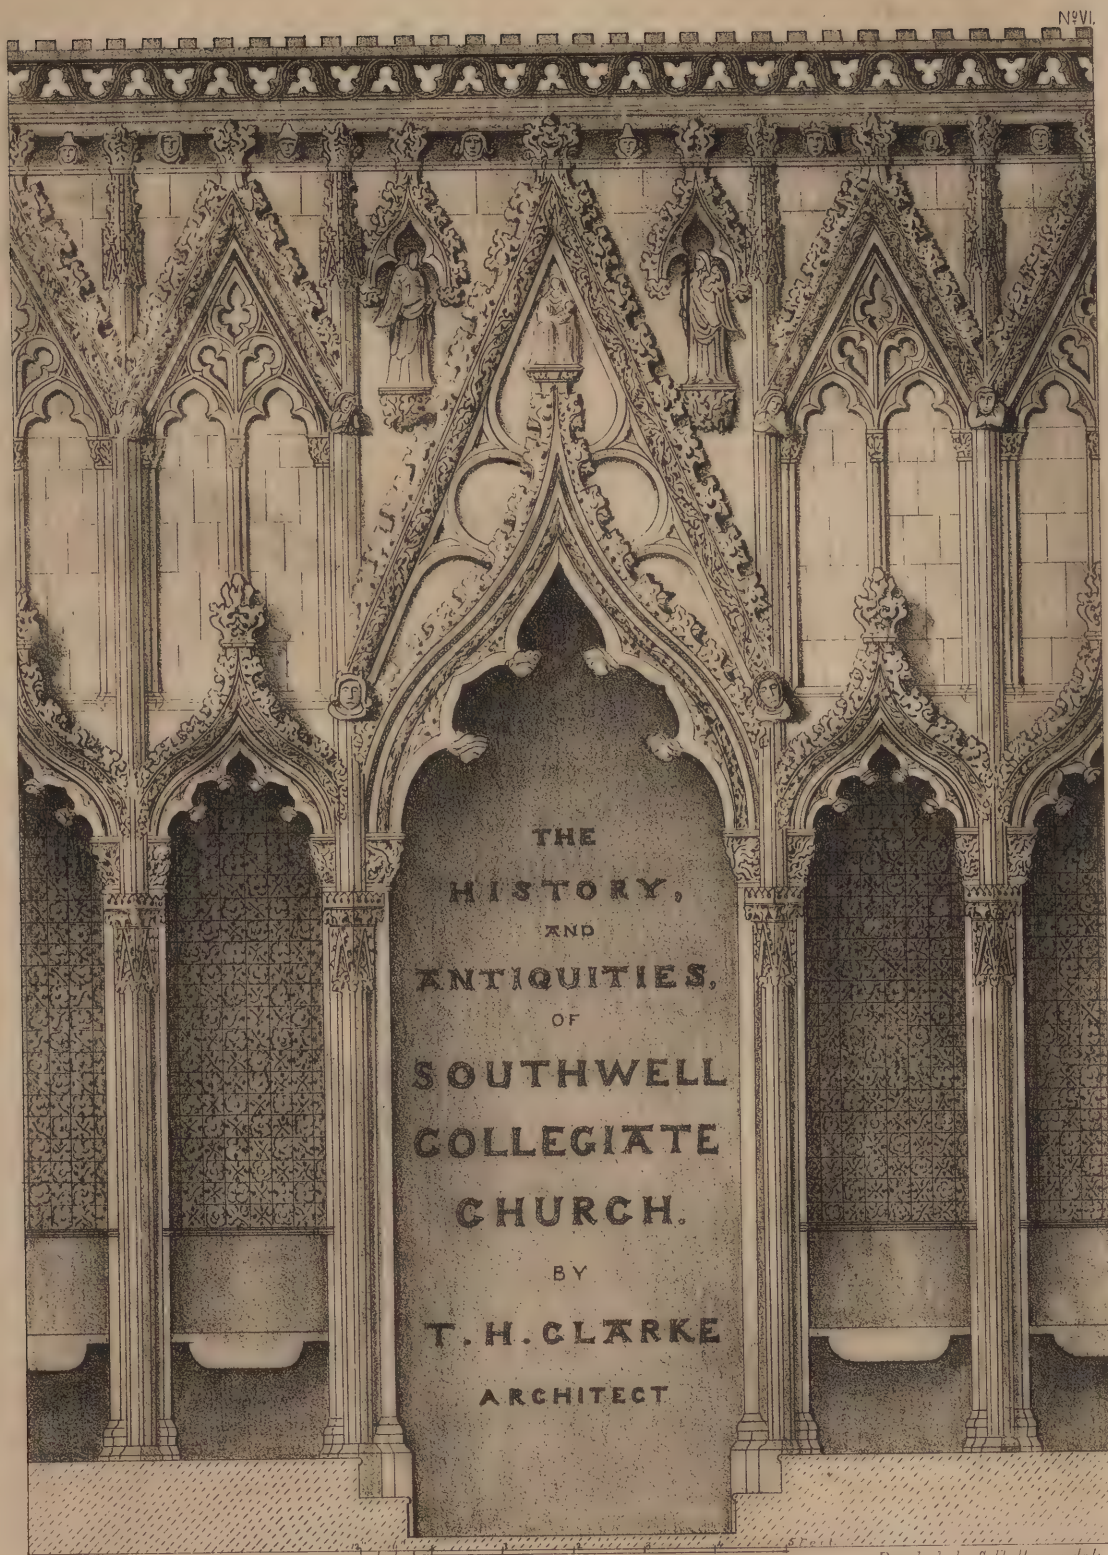 NºVI.
THE
HISTORY,
AND
ANTIQUITIES,
OF
SOUTHWELL
COLLEGIATE
CHURCH.
BY
T. H. CLARKE
ARCHITECT
1 2 3 4 5 Feet